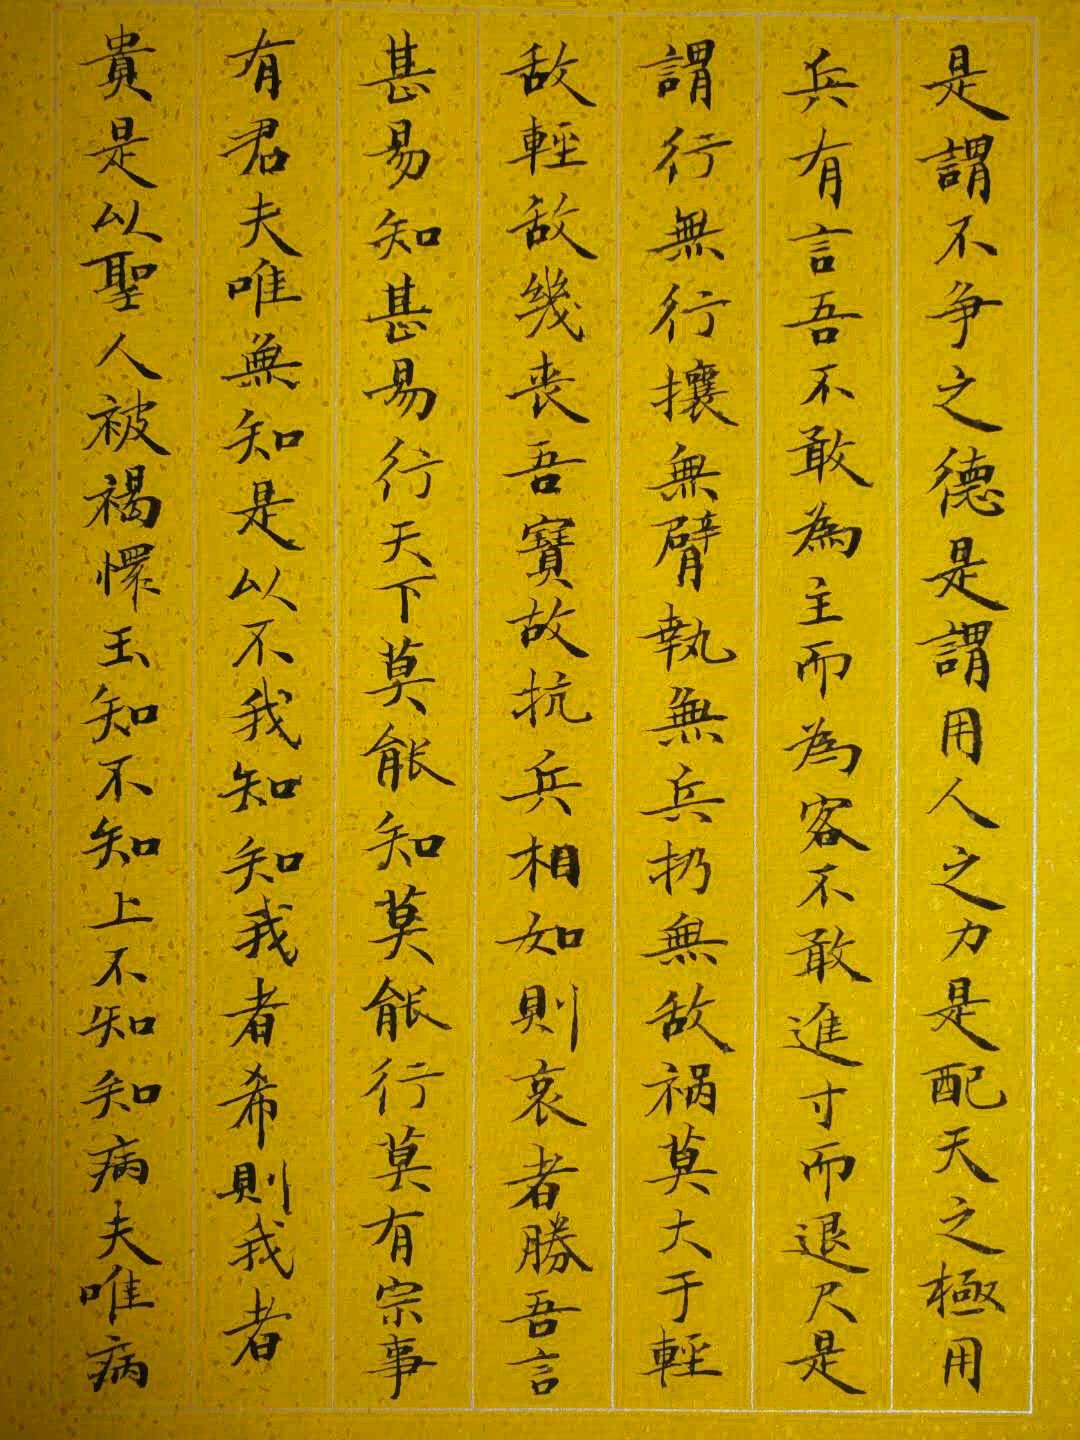 是謂不争之德是謂用人之力是配天之極用
兵有言吾不敢為主而為客不敢進寸而退尺是
謂行無行攘無臂執無兵扔無敌禍莫大于輕
敌輕敌幾丧吾寶故抗兵相如則哀者勝吾言
甚易知甚易行天下莫能知莫能行莫有宗事
有君夫唯無知是以不我知知我者希則我者
貴是以聖人被褐懷玉知不知上不知知病夫唯病